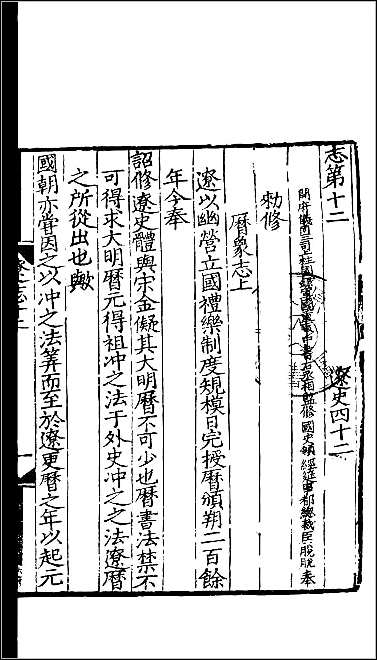 志第十二　遼史四十二
開府儀同三司上柱國錄軍國重事中書右丞相監修國史領經筵事都總裁臣脫脫奉
勑修
曆象志上
遼以幽營立國禮樂制度規模日完授曆頒朔二百餘
年今奉
詔修遼史體與宋金儗其大明曆不可少也曆書法禁不
可得求大明曆元得祖冲之法于外史冲之之法遼曆
之所從出也歟
國朝亦嘗因之以冲之法筭而至於遼更曆之年以起元